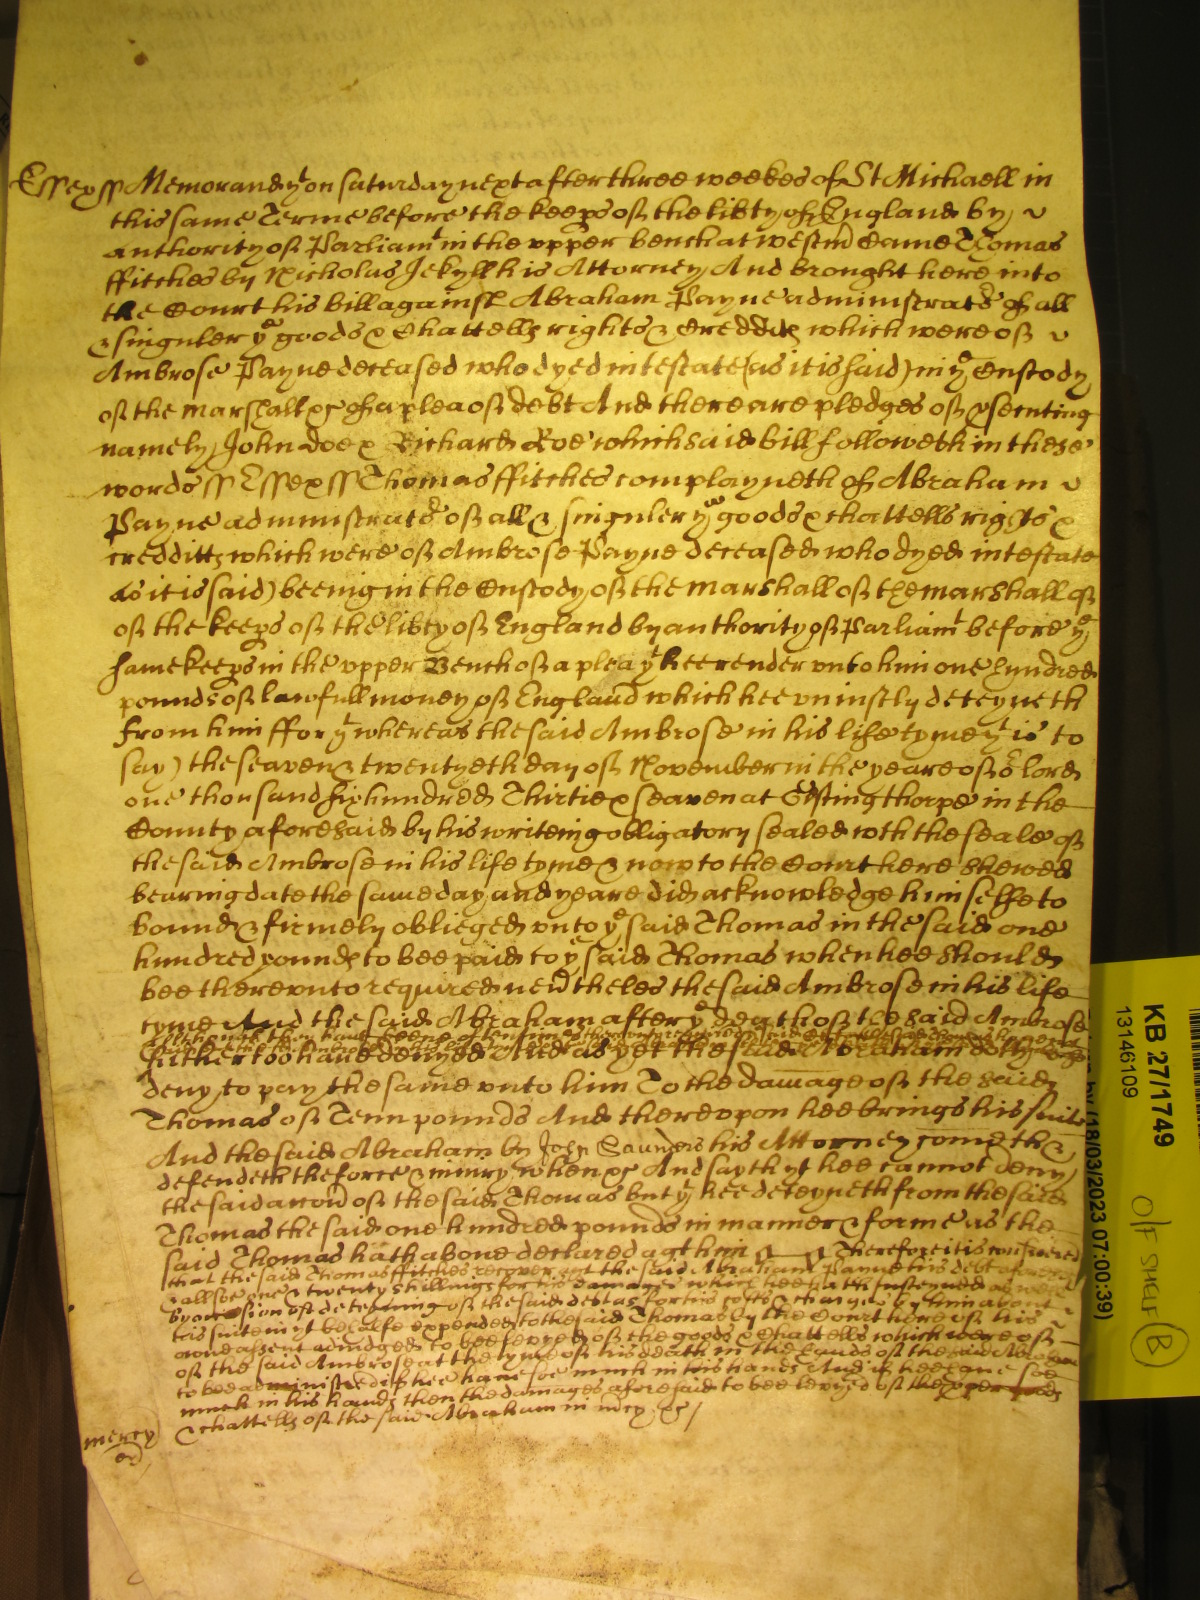 Essex ss Memorand yt on saturday next after three weekes of St Michaell in
this same Terme before the keeps of the libty of England by
authority of Parliamt in the upper bench at westmr Came Thomas
ffitches by Nicholas Jekyll his Attorney And brought here into
the Court his bill against Abraham Payne administrator of all
& singuler ye goods & Chattells rights & Credditts which were of
Ambrose Payne deceased who dyed intestate (as it is said) in ye Custody
of the marshall &c of a plea of debt And there are pledges of psecuting
namely John doe & Richard Roe which said bill followeth in these
words ss Essex ss Thomas ffitches complayneth of Abraham
Payne administrator of all & singuler ye goods & chattells rights &
credditts which were of Ambrose Payne deceased who dyed intestate
as it is said) beeing in the Custody of the marshall of the marshall of
of the keeps of the libty of England by authority of Parliamt before ye
same keeps in the upper Bench of a plea yt hee render unto him one hundred
pounds of lawfull money of England which hee uniustly deteyneth
from him ffor yt whereas the said Ambrose in his life tyme yt is to
say) the seaven & twentyeth day of November in the yeare of or lord
one thousand six hundred Thirtie & seaven at Gestingthorpe in the
County aforesaid by his writeing obligatory sealed wth the seale of
the said Ambrose in his life tyme & now to the Court here shewed
bearing date the same day and yeare did acknowledge himselfe to
bound & firmely oblieged unto ye said Thomas in the said one
hundred pounds to bee paid to ye said Thomas when hee should
bee thereunto required nevertheles the said Ambrose in his life
tyme And the said Abraham after ye death of the said Ambrose
hitherto have denyed And as yet the said Abraham doth
deny to pay the same unto him To the damage of the said
Thomas of Tenn pounds And thereupon hee brings his suite
And the said Abraham by John Saunders his Attorney cometh &
defendeth the force & iniury when &c And sayth yt hee cannot deny
the said accon of the said Thomas but yt hee deteyneth from the said
Thomas the said one hundred pounds in manner & forme as the
said Thomas hath above declared agt him Therefore it is considered
that the said Thomas ffitches recover agt the said Abraham Payne his debt aforesaid
& alsoe one & twenty shillings for his damages which hee hath susteyned as well
by occasion of deteyning of the said debt as for his costs & charges by him about
his suite in yt behalfe expended to the said Thomas by the Court here of his
owne assent adiudged to bee levyed of the goods & Chattells which were of
of the said Ambrose at the tyme of his death in the hands of the said Abraham
to bee administred if hee have soe much in his hands And if hee have soe
much in his hands then the damages aforesaid to bee levyed of the pper goods
& chattells of the said Abraham in mcy &c
mercy
KB 27/1749
13146109
OFF SHELF
B
18/03/2023 07:00:39)